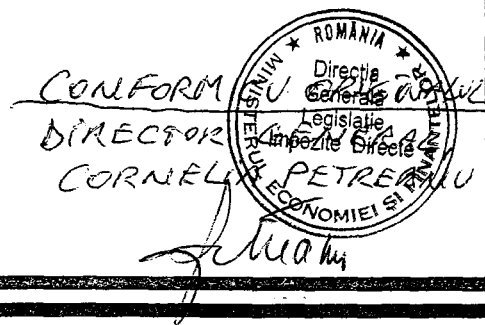 CONFORM CU ORIGINALUL
DIRECTOR GENERAL
CORNELIA PETREANU
ROMÂNIA
MINISTERUL ECONOMIEI ŞI FINANŢELOR
Direcţia
Generală
Legislaţie
Impozite Directe